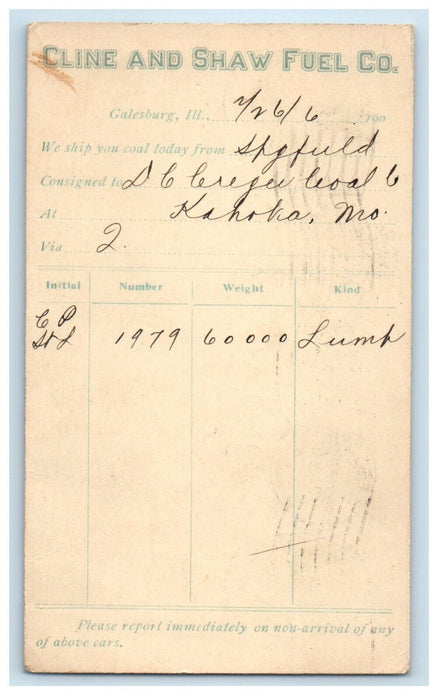 CLINE AND SHAW FUEL CO.
Galesburg, Ill., 7/26/6 190
We ship you coal today from Spgfield
Consigned to D C Creger Coal Co
At Kahoka, Mo.
Via Q.
Initial Number Weight Kind
C P
St L 1979 60000 Lump
Please report immediately on non-arrival of any
of above cars.